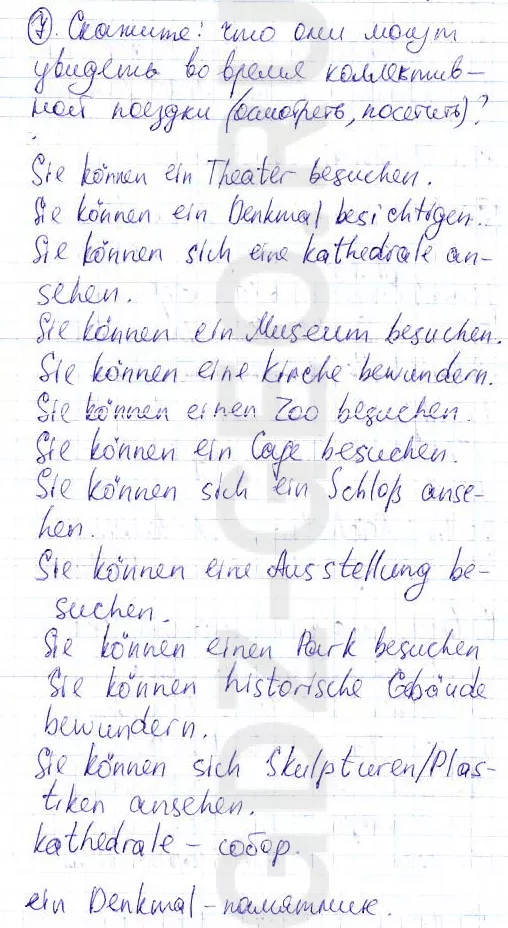 7. Скажите: что они могут
увидеть во время коллектив-
ной поездки (осмотреть, посетить)?
Sie können ein Theater besuchen.
Sie können ein Denkmal besichtigen.
Sie können sich eine Kathedrale an-
sehen.
Sie können ein Museum besuchen.
Sie können eine Kirche bewundern.
Sie können einen Zoo besuchen.
Sie können ein Cafe besuchen.
Sie können sich ein Schloß anse-
hen.
Sie können eine Ausstellung be-
suchen.
Sie können einen Park besuchen
Sie können historische Gebäude
bewundern.
Sie können sich Skulpturen/Plas-
tiken ansehen.
Kathedrale – собор.
ein Denkmal – памятник.
GDZ-GEO.RU